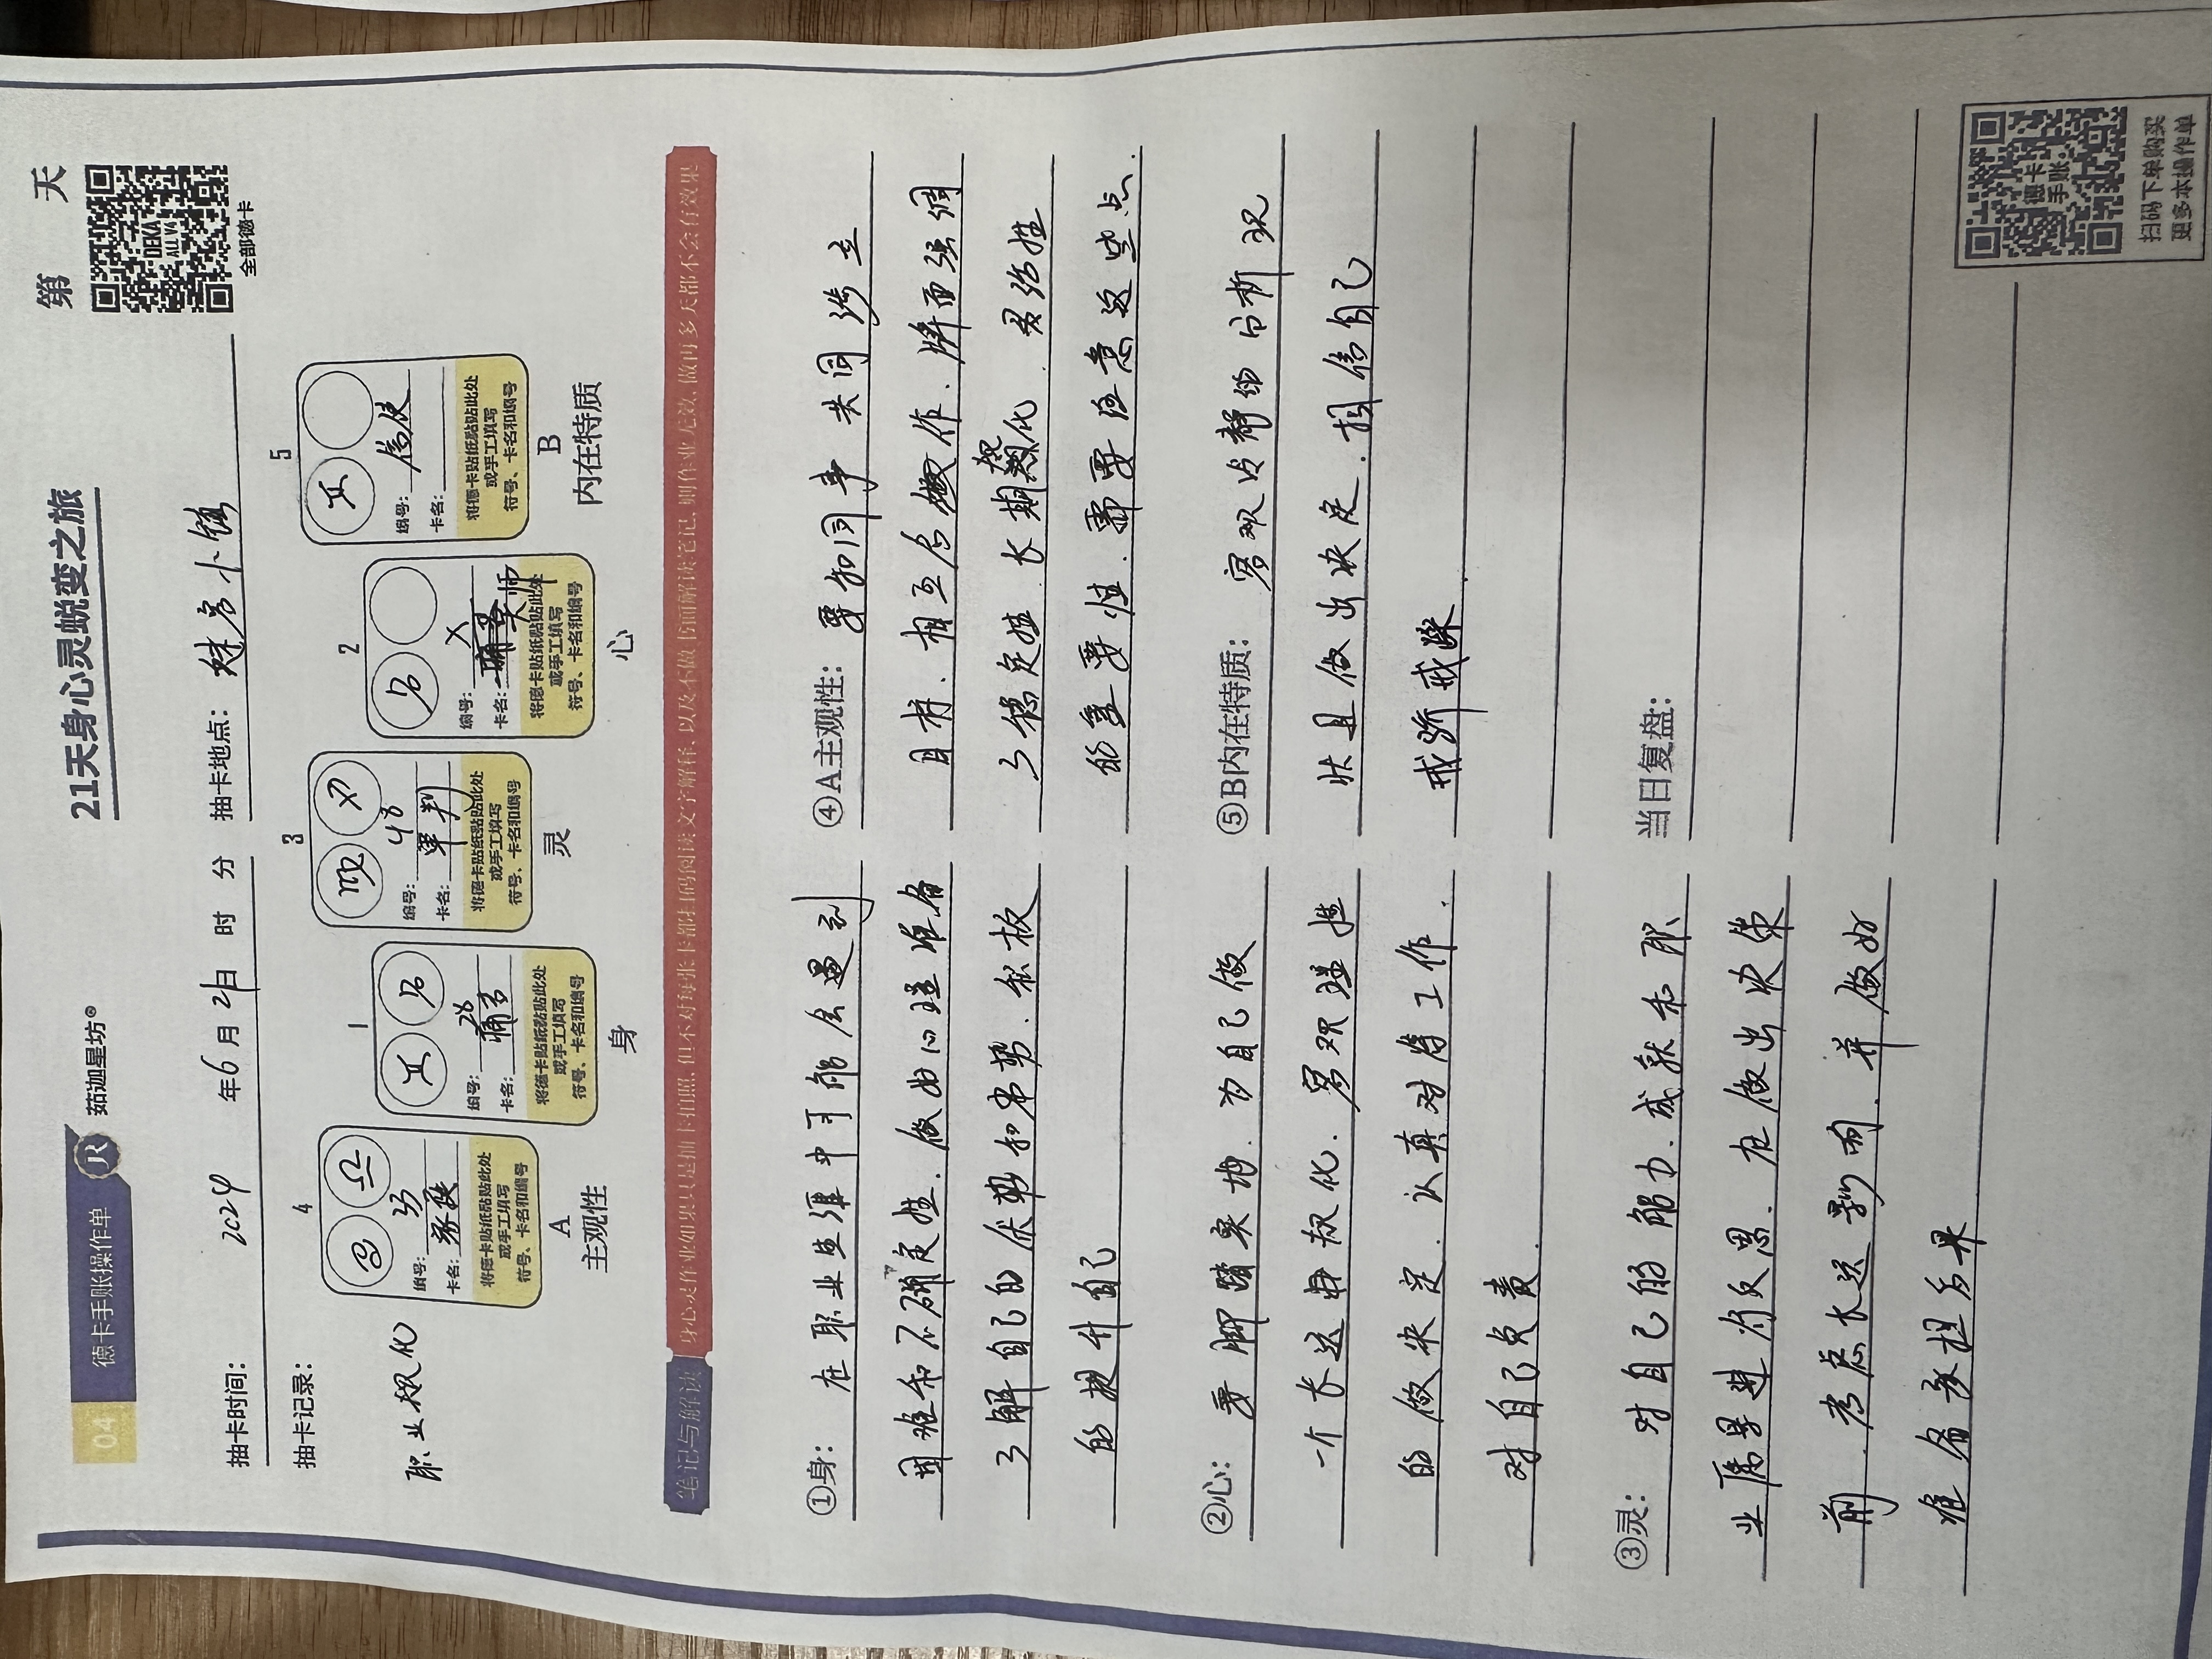 04 德卡手账操作单 茹迦星坊®
21天身心灵蜕变之旅
第 天
DEKA
ALL V4
全部德卡
抽卡时间: 2024 年6月21日 时 分 抽卡地点: 小镇
抽卡记录:
职业规化
4
编号: 33
卡名:
将德卡贴纸粘贴此处
或手工填写
符号、卡名和编号
A
主观性
1
编号: 28
卡名: 痛苦
将德卡贴纸粘贴此处
或手工填写
符号、卡名和编号
身
3
编号: 48
卡名: 审判
将德卡贴纸粘贴此处
或手工填写
符号、卡名和编号
灵
2
编号: X
卡名: 大师
将德卡贴纸粘贴此处
或手工填写
符号、卡名和编号
心
5
编号: 信使
卡名:
将德卡贴纸粘贴此处
或手工填写
符号、卡名和编号
B
内在特质
笔记与解读
身心灵作业如果只是抽卡拍照,但不对每张卡都扫码阅读文字解释,以及不做书面解读笔记,则作业无效,做再多天都不会有效果
①身: 在职业生涯中可能会遇到
困难和不确定性.做好心理准备
了解自己的优势和劣势.积极
的提升自己
②心: 要脚踏实地.为自己做
一个长远规化.客观理性
的做决定.认真对待工作.
对自己负责.
③灵: 对自己的能力.成就和职
业愿景进行反思.在做出决策
前.考虑长远影响.并做好
准备承担后果
④A主观性: 要和同事共同
目标.相互合作.牌面强调
了稳定性.长期规化.灵活性
的重要性.需要注意这些点.
⑤B内在特质: 客观冷静的分析现
状且做出决定.相信自己
戒骄戒躁.
当日复盘:
德卡
手账
扫码下单购买
更多本操作单